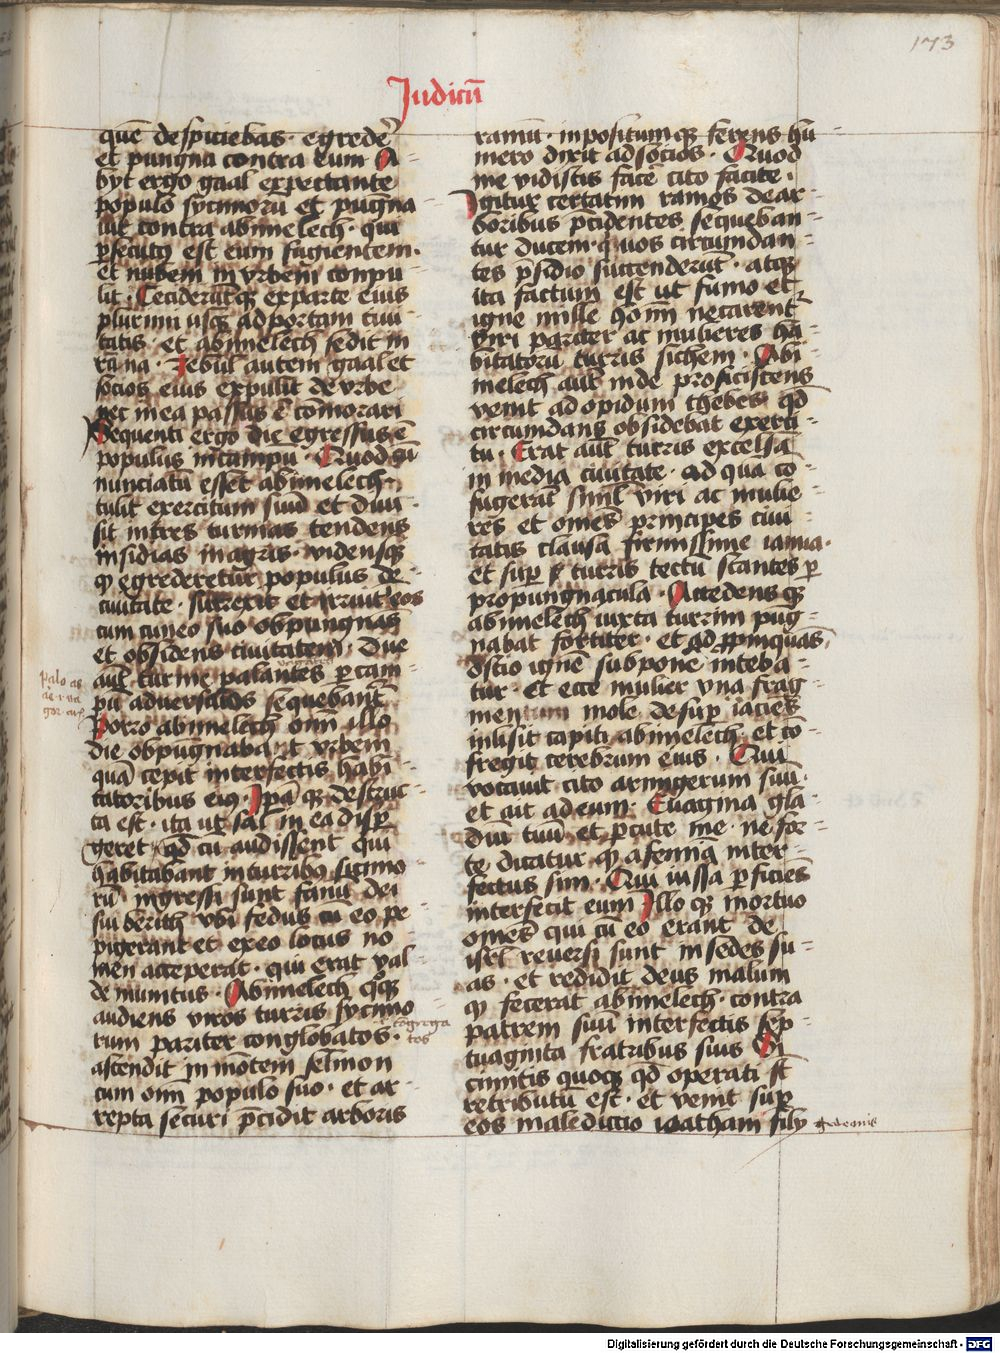 173
Judicū
quē despiciebas · egredē
et pungna contra eum A
byt ergo gaal expectante
populo sycimorū et pugna
uit contra abimelech · qui
ꝑsecutꝯ est eum fugientem ·
et nubem in vrbem conpu
lit · Ceciderūtqꝫ ex parte eius
plurimi usqꝫ ad portam ciui
tatis · et abimelech sedit in
rama · Zebul autem gaal et
socios eius expulit de vrbe
nec in ea passus ē cōmorari
Sequenti ergo die egressus ē
populus in campū · Quod cū
nunciatū esset abimelech ·
tulit exercitum suū et diui
sit in tres turmas tendens
insidias in agris · vidensqꝫ
ꝙ egrederetur populus de
ciuitate · surrexit et irruit eos
cum cuneo suo obpungnās
et obsidens ciuitatem · Due
aūt turme palantes ꝑ cam
pū aduersarios sequebant
palo as
Porro abimelech om̄i illo
die obpugnaba t vrbem
quā cepit interfectis habi
tatoribus eiꝯ · Ipā qꝫ destruc
ta est · ita ut sal in ea disꝑ
geret qd cū audissent qui
habitabant in turribꝯ sicimo
rū · ingressi sunt fanū dei
sui berith vbi fedus cū eo pe
pigerant et ex eo locus no
men acceperat · qui erat val
de munitus · Abimelech qꝫ
audiens viros turris sycimo
rum pariter conglobatos ·
cōgrega
tos
ascendit in mōtem selmon
cum om̄i populo suo · et ar
repta securi p̄cidit arboris
ramū · inpositum qꝫ ferens hu
mero dixit ad socios · Quod
me vidistis facē cito facite ·
Igitur certatim ramos de ar
boribus p̄cidentes sequeban
tur ducem · quos circumdan
tes p̄sidio succenderūt · atqꝫ
ita factum est ut fumo et
igne mille hom̄i necarent
viri pariter ac mulieres ha
bitatorū turris sichem · Abi
melech aūt inde proficiscens
venit ad opidum thebes qd
circumdans obsidebat exerci
tu · Erat aūt turris excelsa
in media ciuitate · ad quā cō
fugerāt siml̄ viri ac mulie
res et omēs principes ciui
tatis clausa firmissime ianua ·
et suꝑ turris tectū stantes ꝑ
propungnacula · Accedens qꝫ
abimelech iuxta turrim pug
nabat fortiter · et ad ꝓpinquās
ostio ignē subpone inteba
tur · Et ecce mulier vna frag
mentum mole desuꝑ iaciēs
inlisit capiti abimelech · et cō
fregit cerebrum eius · Qui
vocauit cito armigerum suū ·
et ait ad eum · Euagina gla
diū tuū et ꝑcute me · ne for
te dicatur ꝙ a femina inter
fectus sim · Qui iussa ꝑficiēs
interfecit eum Illo qꝫ mortuo
omēs qui cū eo erant de
isrl̄ reuersi sunt in sedes su
as · et reddidit deus malum
ꝙ fecerat abimelech · contra
patrem suū interfectis sep
tuaginta fratribus suis Si
cimitis quoqꝫ qd operati st̄
retributū est · et venit suꝑ
eos maledictio ioatham filij
gedeonis
Digitalisierung gefördert durch die Deutsche Forschungsgemeinschaft - DFG